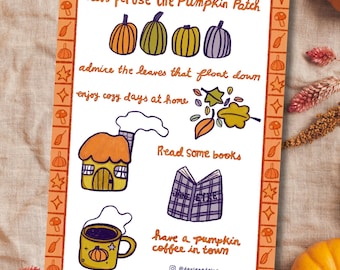 peruse the Pumpkin Patch
admire the leaves that float down
enjoy cozy days at home
Read Some books
have a pumpkin
coffee in town